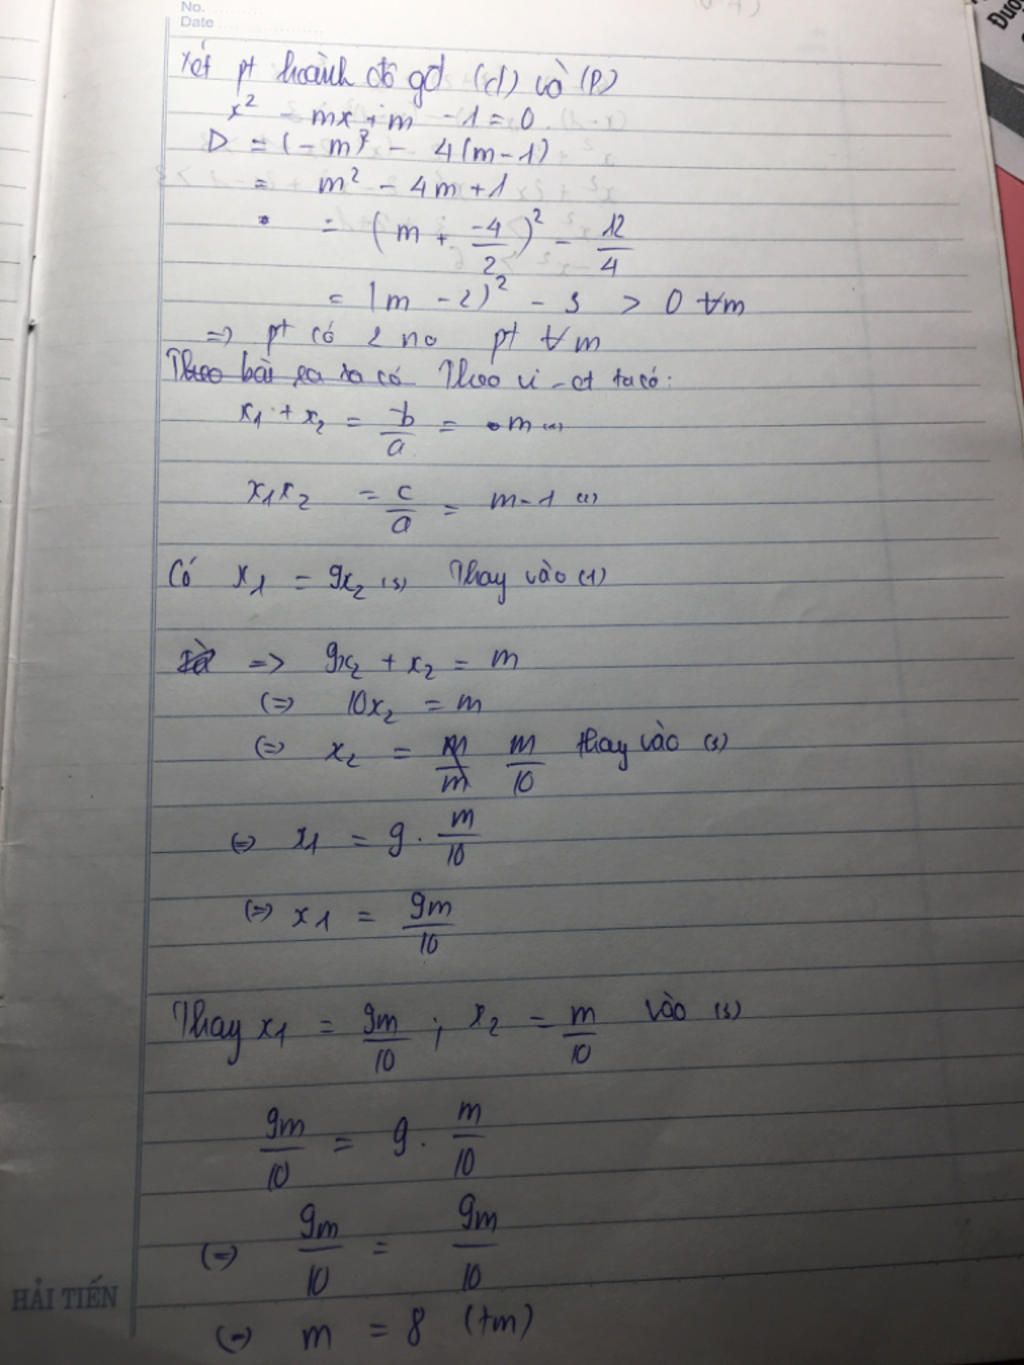 No.
Date
Xét pt hoành độ gđ (d) và (P)
x² - mx + m - 1 = 0
D = (-m)² - 4(m-1)
= m² - 4m + 1
= (m + -4/2)² - 12/4
= (m - 2)² - 3 > 0 ∀m
=> pt có 2 no pt ∀m
Theo bài ra ta có Theo vi-et ta có:
x₁ + x₂ = -b/a = m (1)
x₁x₂ = c/a = m-1 (2)
Có x₁ = 9x₂ (3) Thay vào (1)
=> 9x₂ + x₂ = m
(=) 10x₂ = m
(=) x₂ = m/m m/10 thay vào (3)
(=) x₁ = 9 . m/10
(=) x₁ = 9m/10
Thay x₁ = 9m/10 ; x₂ = m/10 vào (3)
9m/10 = 9 . m/10
(=) 9m/10 = 9m/10
(=) m = 8 (tm)
HẢI TIẾN